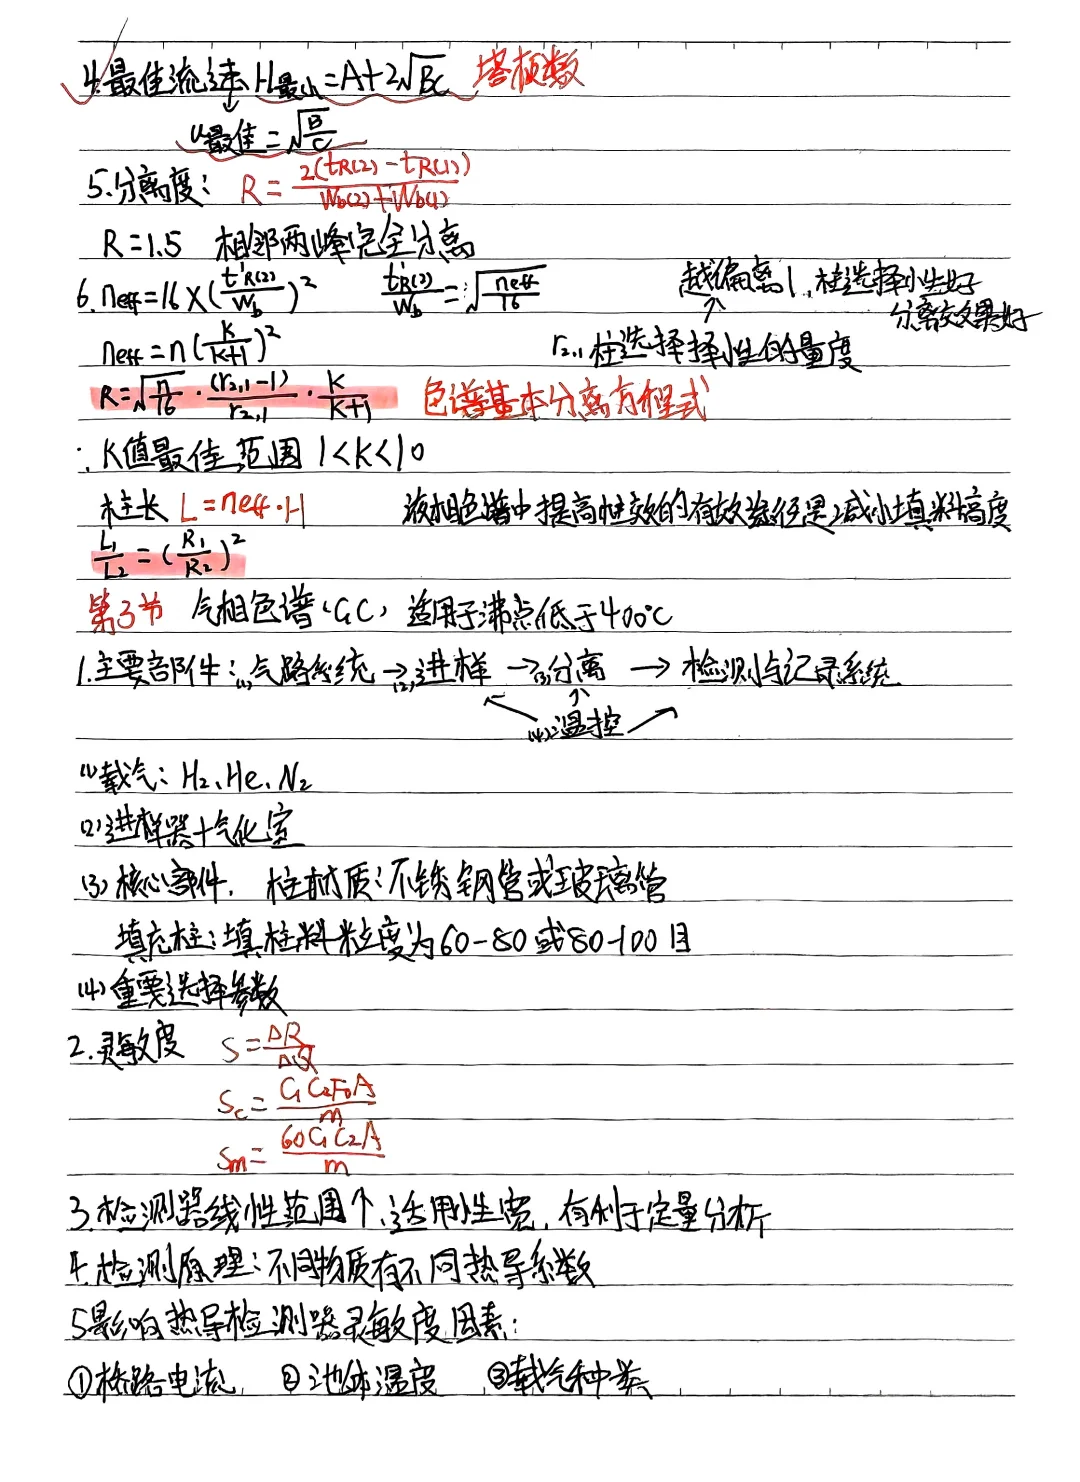 4.最佳流速 H最小=A+2√BC 塔板数
↓
u最佳=√(B/C)
5.分离度: R=2(tR(2)-tR(1))/(Wb(2)+Wb(1))
R=1.5 相邻两峰完全分离
6.neff=16×(t'R(2)/Wb)² t'R(2)/Wb=√(neff/16) 越偏离1,柱选择性好
分离效果好
neff=n(k/(k+1))² r2,1柱选择择性的量度
R=√(n/16)·(r2,1-1)/r2,1·k/(k+1) 色谱基本分离方程式
∴K值最佳范围 1<K<10
柱长 L=neff·H 液相色谱中提高柱效的有效途径是减小填料高度
L1/L2=(R1/R2)²
第3节 气相色谱(GC) 适用于沸点低于400℃
1.主要部件:(1)气路系统→(2)进样→(3)分离→检测与记录系统
(4)温控
(1)载气:H2、He、N2
(2)进样器+气化室
(3)核心部件. 柱材质:不锈钢管或玻璃管
填充柱:填柱料粒度为60-80或80-100目
(4)重要选择参数
2.灵敏度 S=ΔR/ΔQ
Sc=C1C2F0A/m
Sm=60C1C2A/m
3.检测器线性范围个,适用性宽,有利于定量分析
4.检测原理:不同物质有不同热导系数
5影响热导检测器灵敏度因素:
①桥路电流 ②池体温度 ③载气种类